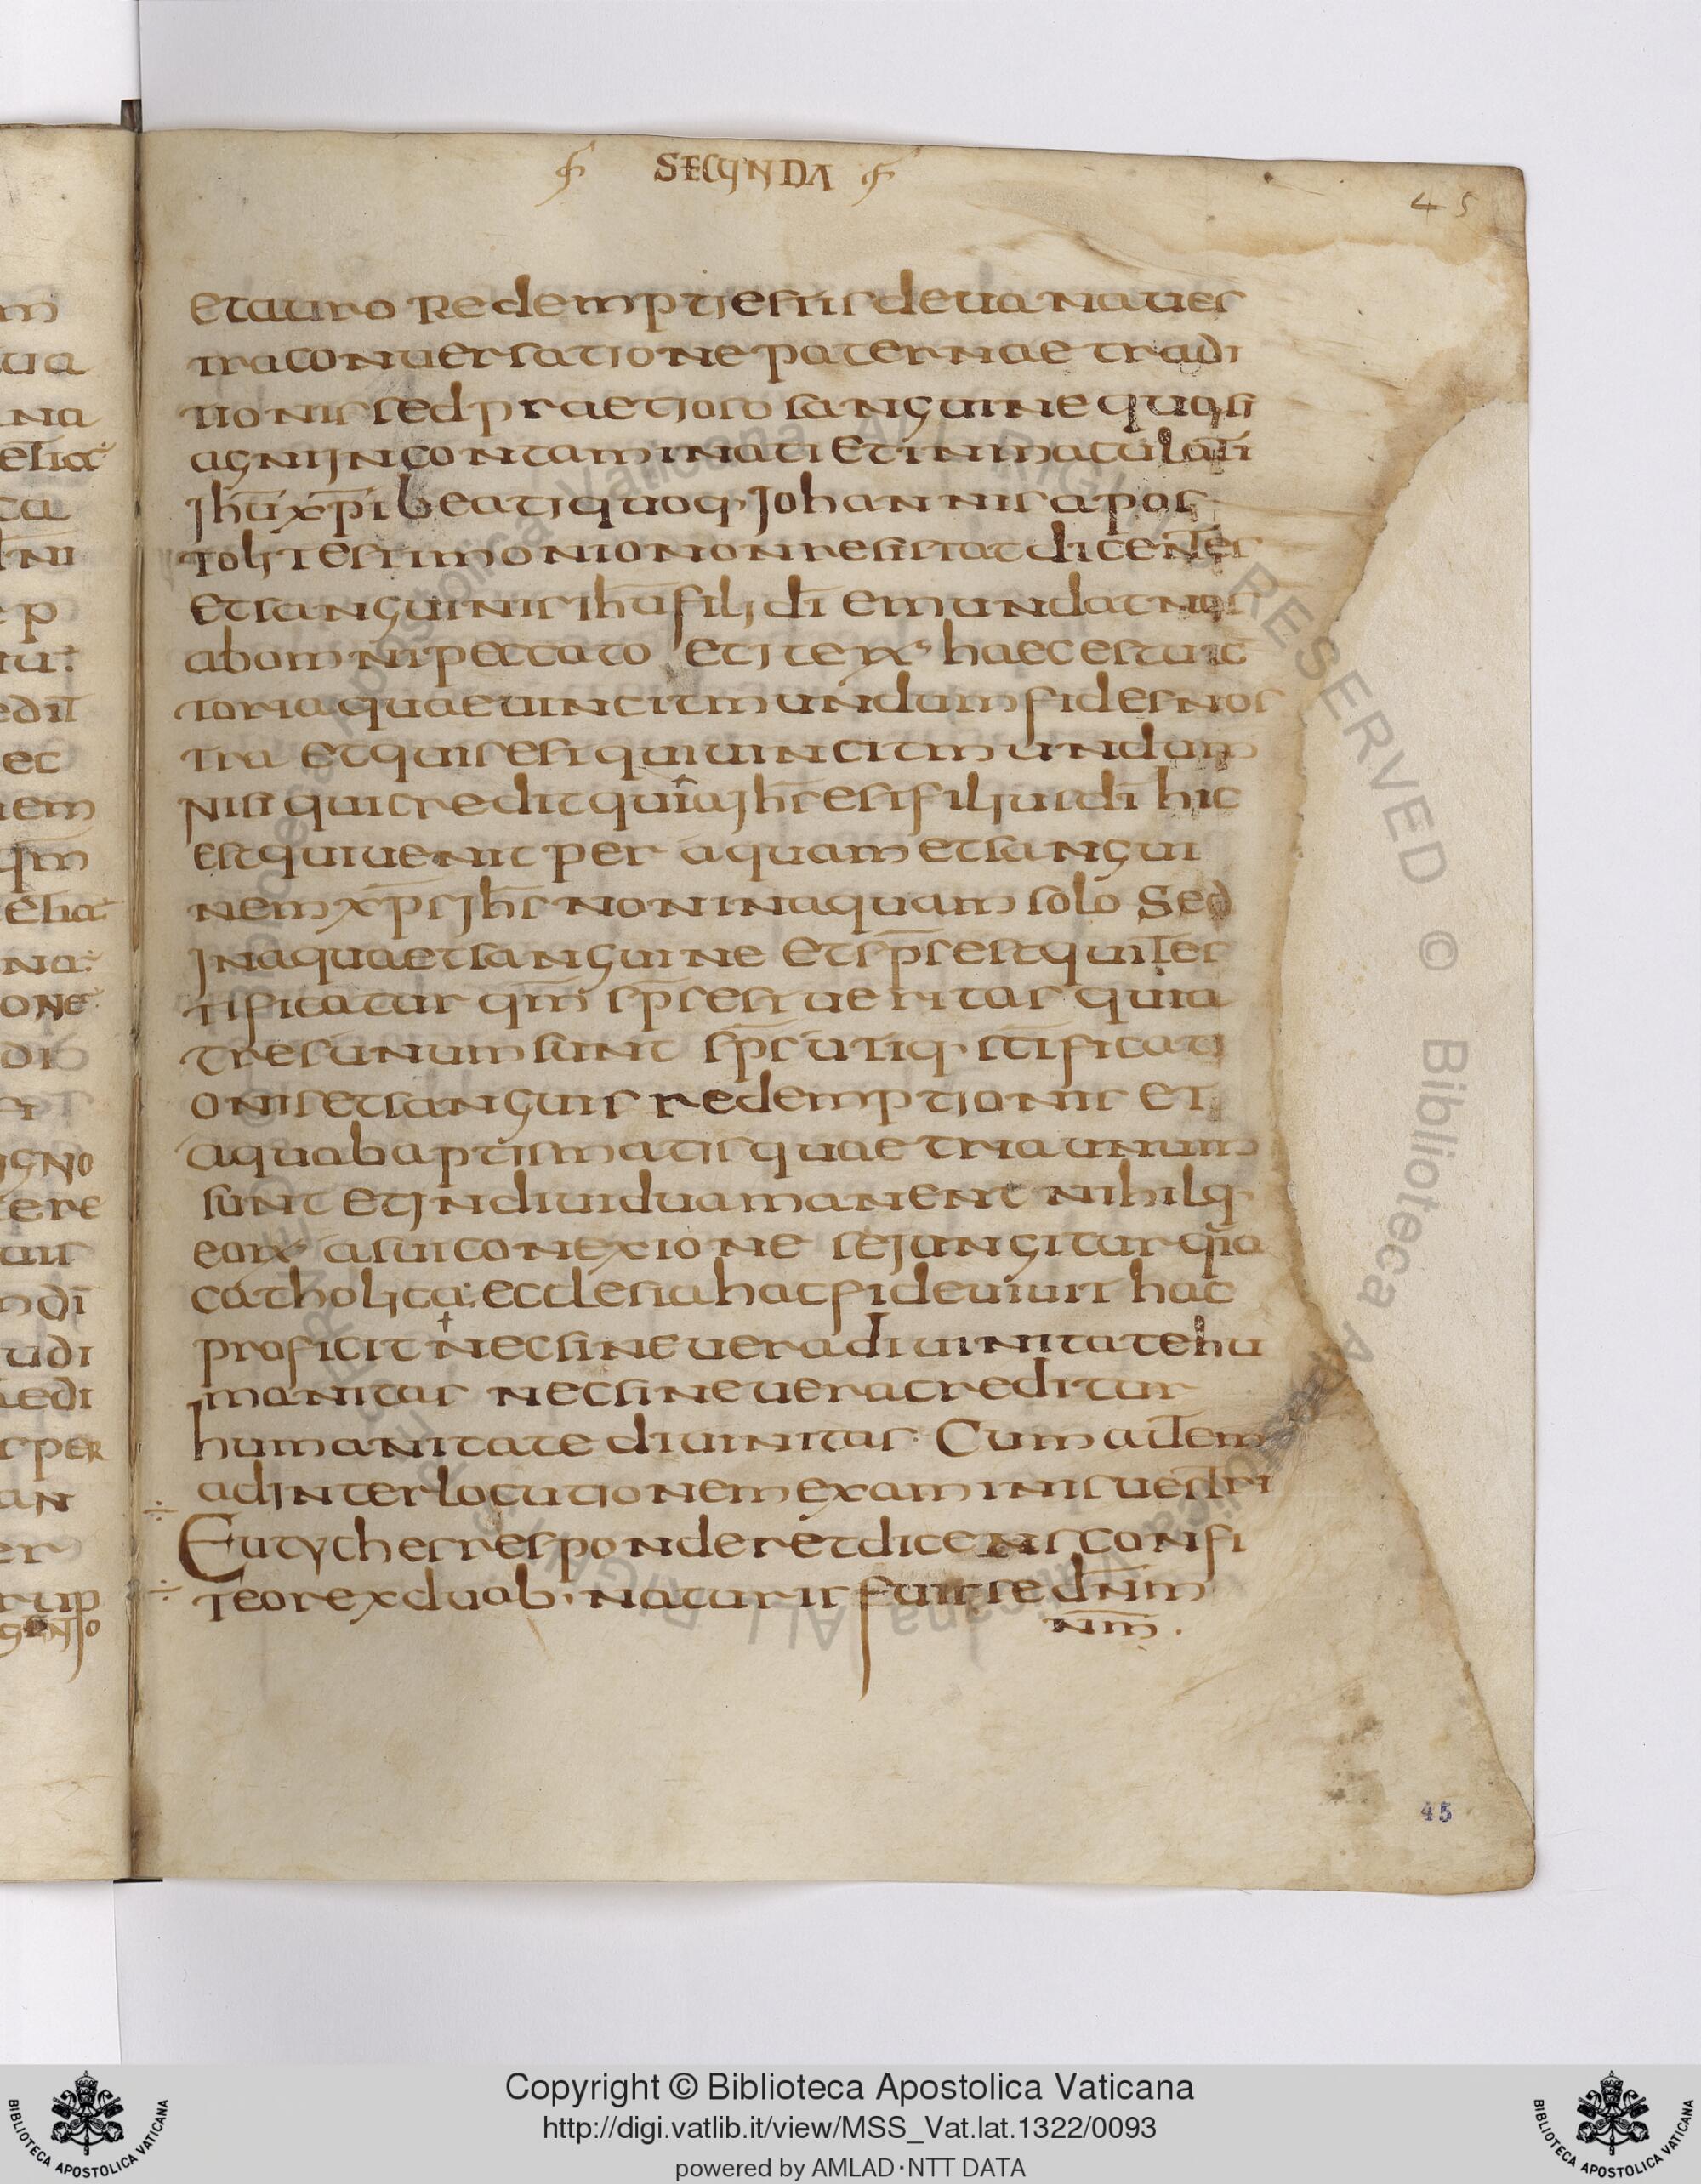 SECUNDA
45
et auro redempti estis de uana ues
tra conuersatione paternae tradi
tionis sed praetioso sanguine quasi
agni incontaminati et inmaculati
ihū xp̄i beati quoq· iohannis apos
toli testimonio non resistat dicentes
et sanguinis ihū filii dī emundat nos
ab omni peccato et iterx haec est uic
toria quae uincit mundum fides nos
tra et quis est qui uincit mundum
nisi qui credit quia ihs̄ est filius dī hic
est qui uenit per aquam et sangui
nem xp̄s ihs̄ non in aquam solo sed
in aqua et sanguine et sp̄s est qui tes
tificatur qm̄ sp̄s est ueritas quia
tres unum sunt sp̄s utiq· sc̄ificati
onis et sanguis redemptionis et
aqua baptismatis quae tria unum
sunt et indiuidua manent nihilq·
eorx a sui conexione seiungitur qīa
catholica: ecclesia hac fide uiuit hac
proficit nec sine uera diuinitate hu
manitas nec sine uera creditur
humanitate diuinitas. Cum autem
ad interlocutionem examinis uestri
Eutyches responderet dicens confi
teor ex duab· naturis fuisse dn̄m
nm̄.
45
Copyright © Biblioteca Apostolica Vaticana
http://digi.vatlib.it/view/MSS_Vat.lat.1322/0093
powered by AMLAD·NTT DATA